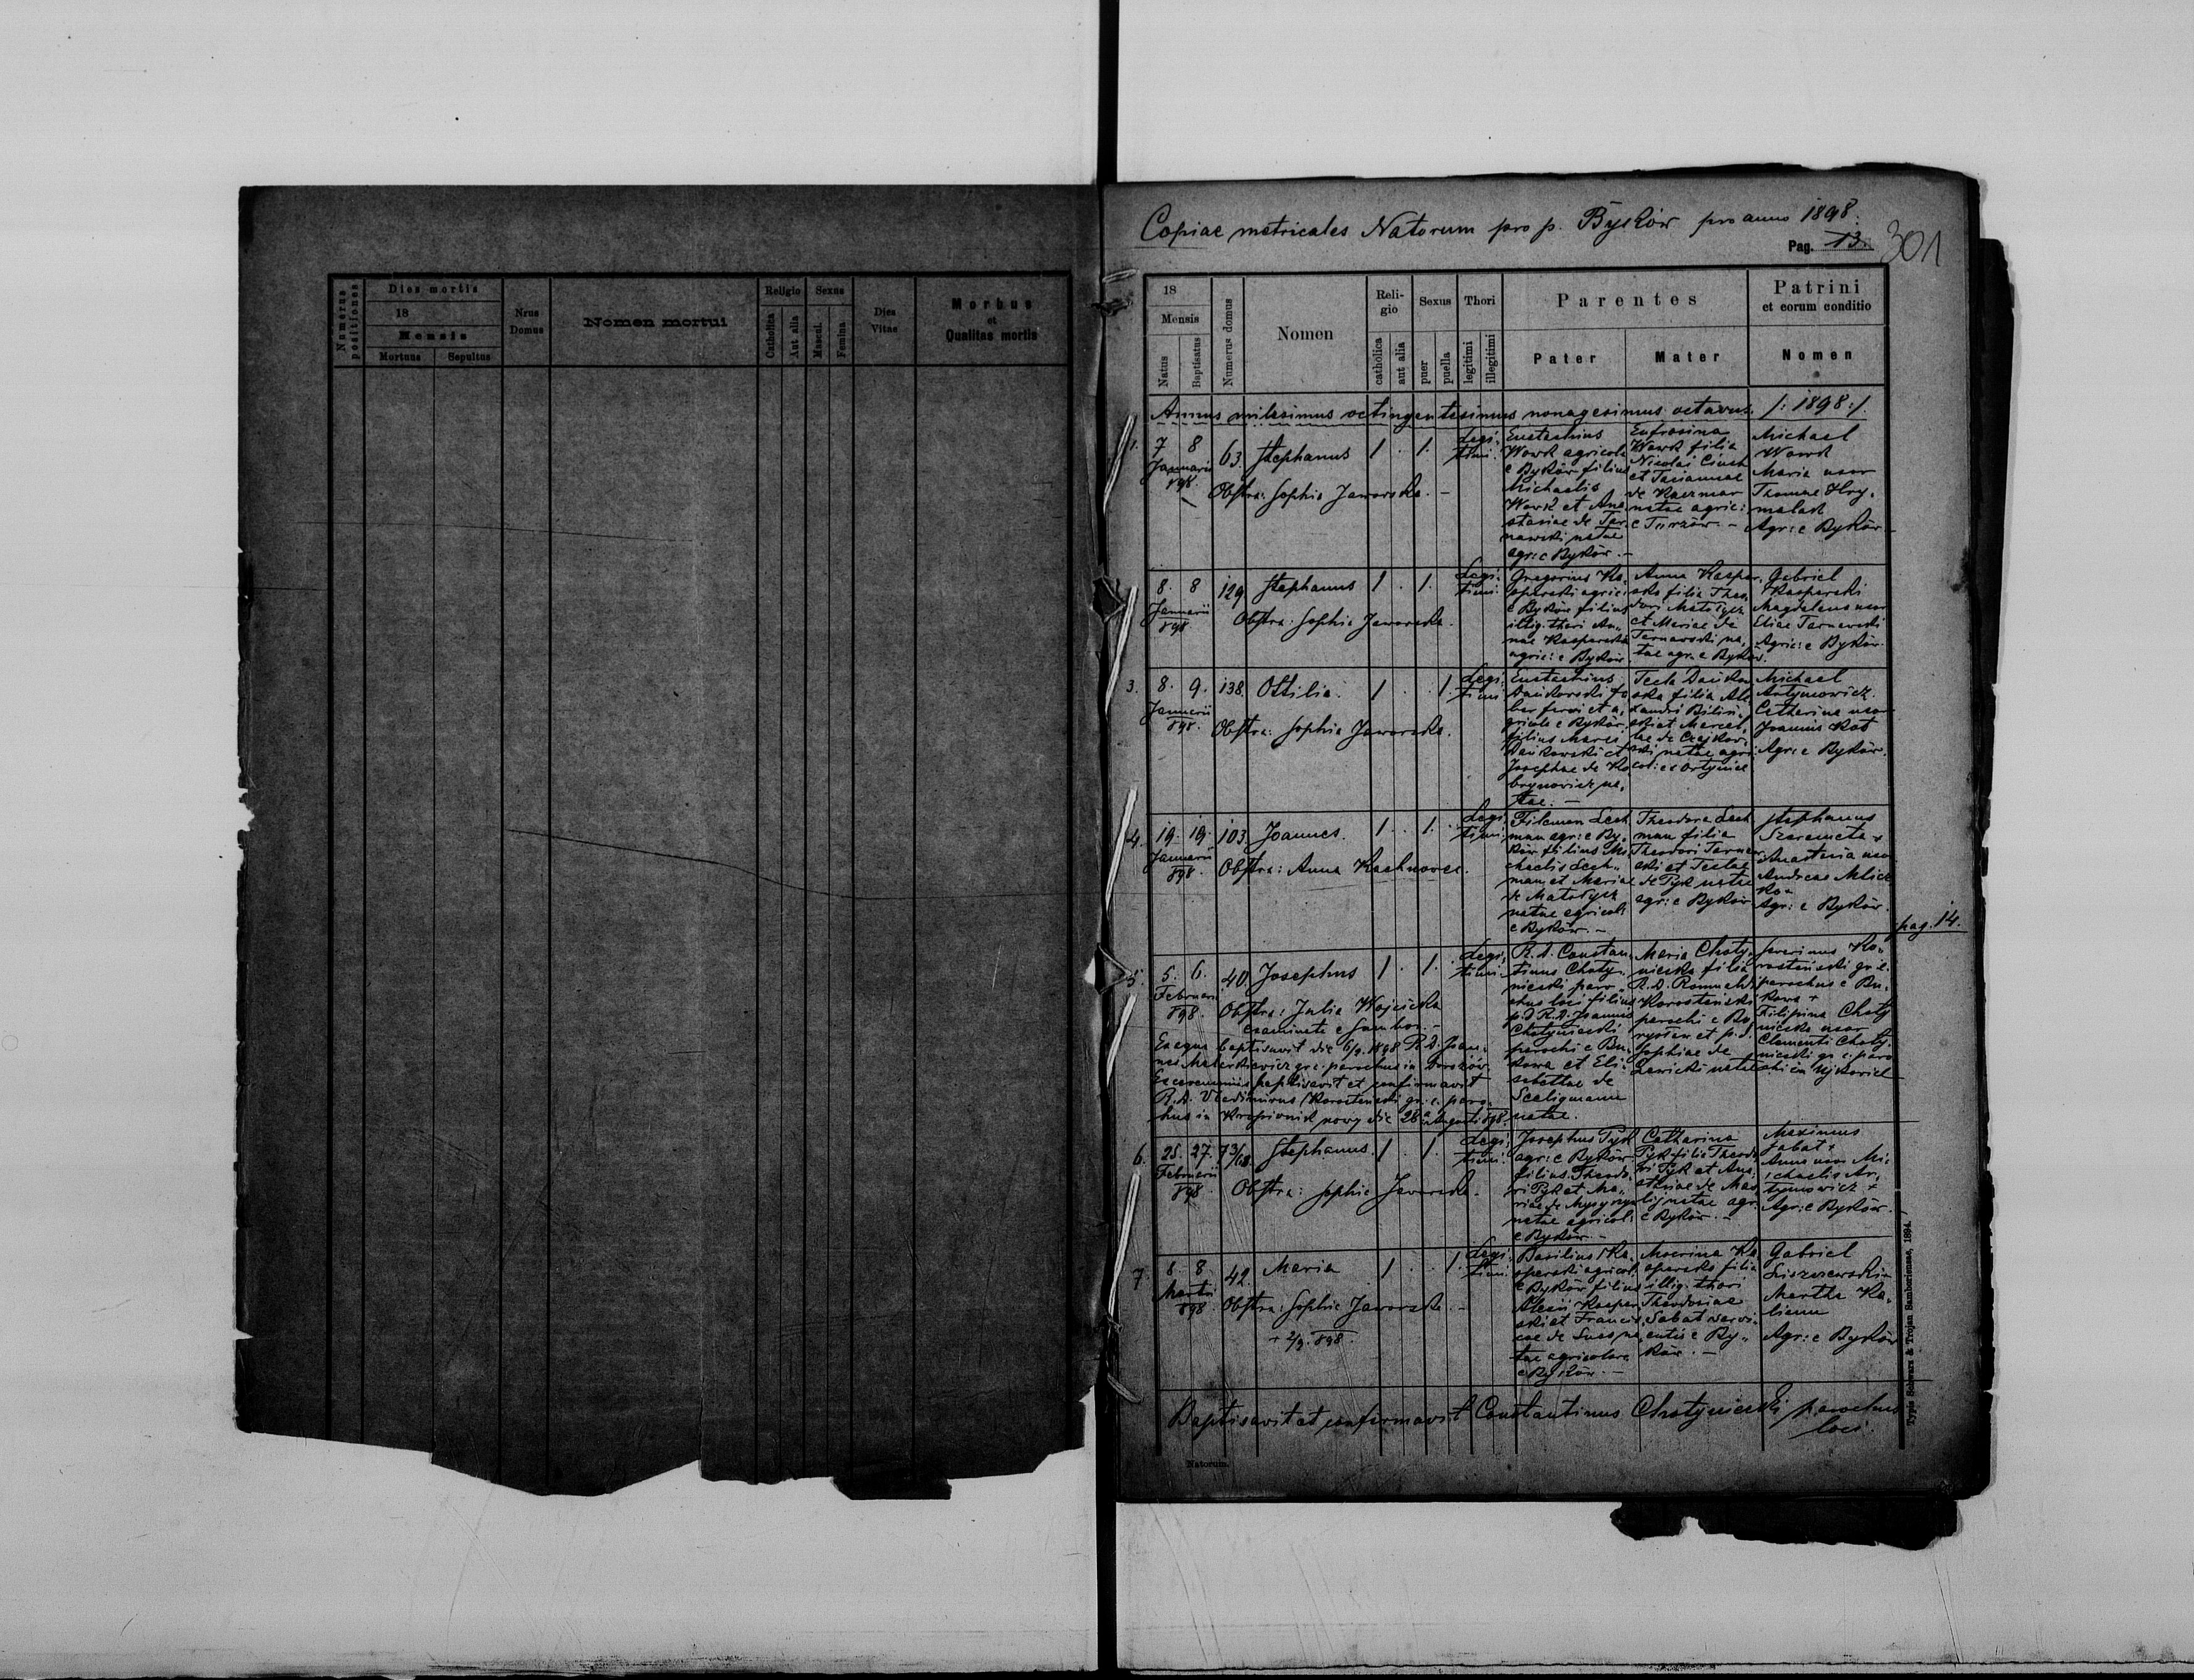 Numerus positiones
Dies mortis
18
Mensis
Mortuus
Sepultus
Nrus Domus
Nomen mortui
Religio
Catholica
Aut. alia
Sexus
Mascul.
Femina
Dies Vitae
Morbus
et
Qualitas mortis
Copiae metricales Natorum pro p. Byków pro anno 1898.
Pag. 13.
301
18
Mensis
Natus
Baptisatus
Numerus domus
Nomen
Reli-
gio
catholica
aut alia
Sexus
puer
puella
Thori
legitimi
illegitimi
Parentes
Pater
Mater
Patrini
et eorum conditio
Nomen
Annus milesimus octingentesimus nonagesimus octavus. /: 1898 :/.
1.
7 8
Januarii
898.
63.
Stephanus
1 . 1.
Legi-
timi.
Obstra: Sophia Jaworska. -
Eustachius
Wowk agricola
e Byków filius
Michaelis
Wowk et Ana
stasiae de Tar-
nawski natae
agr: e Byków. -
Eufrosina
Wowk filia
Nicolai
et
de Kaczmar
natae agric:
e
Michael
Wowk
Maria uxor
Thomae Hry-
Agr: e Byków -
8. 8
Januarii
898
129
Stephanus
1 . 1.
Legi-
timi.
Obstra: Sophia Jaworska.
Gregorius Ka-
sparski agric:
e Byków filius
illig. thori An-
nae Kasparska
agric: e Byków.
Anna Kaspar-
ska filia Theo-
dori
et Mariae de
Tarnawski na-
tae agr. e Byków.
Gabriel
Kasparski
Magdalena uxor
Eliae Tarnawski
Agric: e Byków
3.
8. 9.
Januarii
898.
138.
Ottilia.
1 . . 1.
Legi-
timi
Obstra: Sophia Jaworska.
Eustachius
fa-
ber ferri et a-
gricola e Byków
filius Marci
et
Josephae de Ko
brynowicz na-
tae. -
Tecla
ska filia Ale
xandri Bilin-
ski et Marcel-
lae de Czajkow-
ski natae agri
col: ex Ortynice
Michael
Antymowicz.
Catharina uxor
Joannis Kot
Agr: e Byków.
4.
19. 19.
Januarii
898.
103.
Joannes.
1 . 1.
Legi-
timi.
Obstra: Anna
Filemon Lech
man agr: e By-
ków filius Mi
chaelis Lech-
man et Mariae
de
natae agricol:
e Byków. -
Theodora Lech
man filia
Theodori Tarnaw
ski et Teclae
de Pyk natae
agr: e Byków
Stephanus
Szeremeta +
Anastasia uxor
Andreae
Agr: e Byków.
pag. 14.
5.
5. 6.
Februarii
898.
40.
Josephus
1 . 1.
Legi-
timi.
Obstra: Julia Wojcicka
examinata e Sambor. -
Ex aqua baptisavit die 6/2. 1898 R. D. Joan-
nes gr. c. parochus in Dorożów.
Ex ceremoniis baptisavit et confirmavit
R. D. Vladimirus Korosteński gr. c. paro-
chus in Kropiwnik nowy die 28a Augusti 898.
R. D. Constan-
tinus Choty-
niecki paro-
chus loci filius
p. d. R. D. Joannis
Chotyniecki
parochi e Bu-
kowa et Eli-
sabethae de
Seeligmann
natae.
Maria Choty-
niecka filia
R. D. Romualdi
Korosteński
parochi e
et p. d.
Sophiae de
natae
Severinus Ko-
rosteński gr. c.
parochus e Bu-
kowa +
Filipina Choty
niecka uxor
Clementi Choty-
niecki gr. c. paro
chi in
6.
25. 27.
Februarii
898
73/
Stephanus.
1 . 1.
Legi-
timi.
Obstra: Sophia Jaworska.
Josephus Pyk
agr: e Byków
filius Theodo-
ri Pyk et Ma-
riae de
natae agricol:
e Byków. -
Catharina
Pyk filia Theodo
ri Pyk et Ana
stasiae de
natae agr.
e Byków. -
Maximus
Sabat +
Anna uxor Mi-
chaelis An-
tymowicz +
Agr: e Byków.
7.
8. 8.
Martii
898
42.
Maria
1 . . 1.
Legi-
timi
Obstra: Sophia Jaworska. -
+ 2/9. 898.
Basilius Ka-
sparski agricol:
e Byków filius
Alexii Kaspar
ski et Francis-
cae de na
tae agricolare
e Byków. -
Macrina Ka
sparska filia
illig. thori
Theodosiae
Sabat servi-
entis e By-
ków. -
Gabriel
Martha Ka-
Agr: e Byków
Baptisavit et confirmavit Constantinus Chotyniecki parochus
loci.
Natorum.
Typis Schwarz & Trojan Samboriensis, 1894.